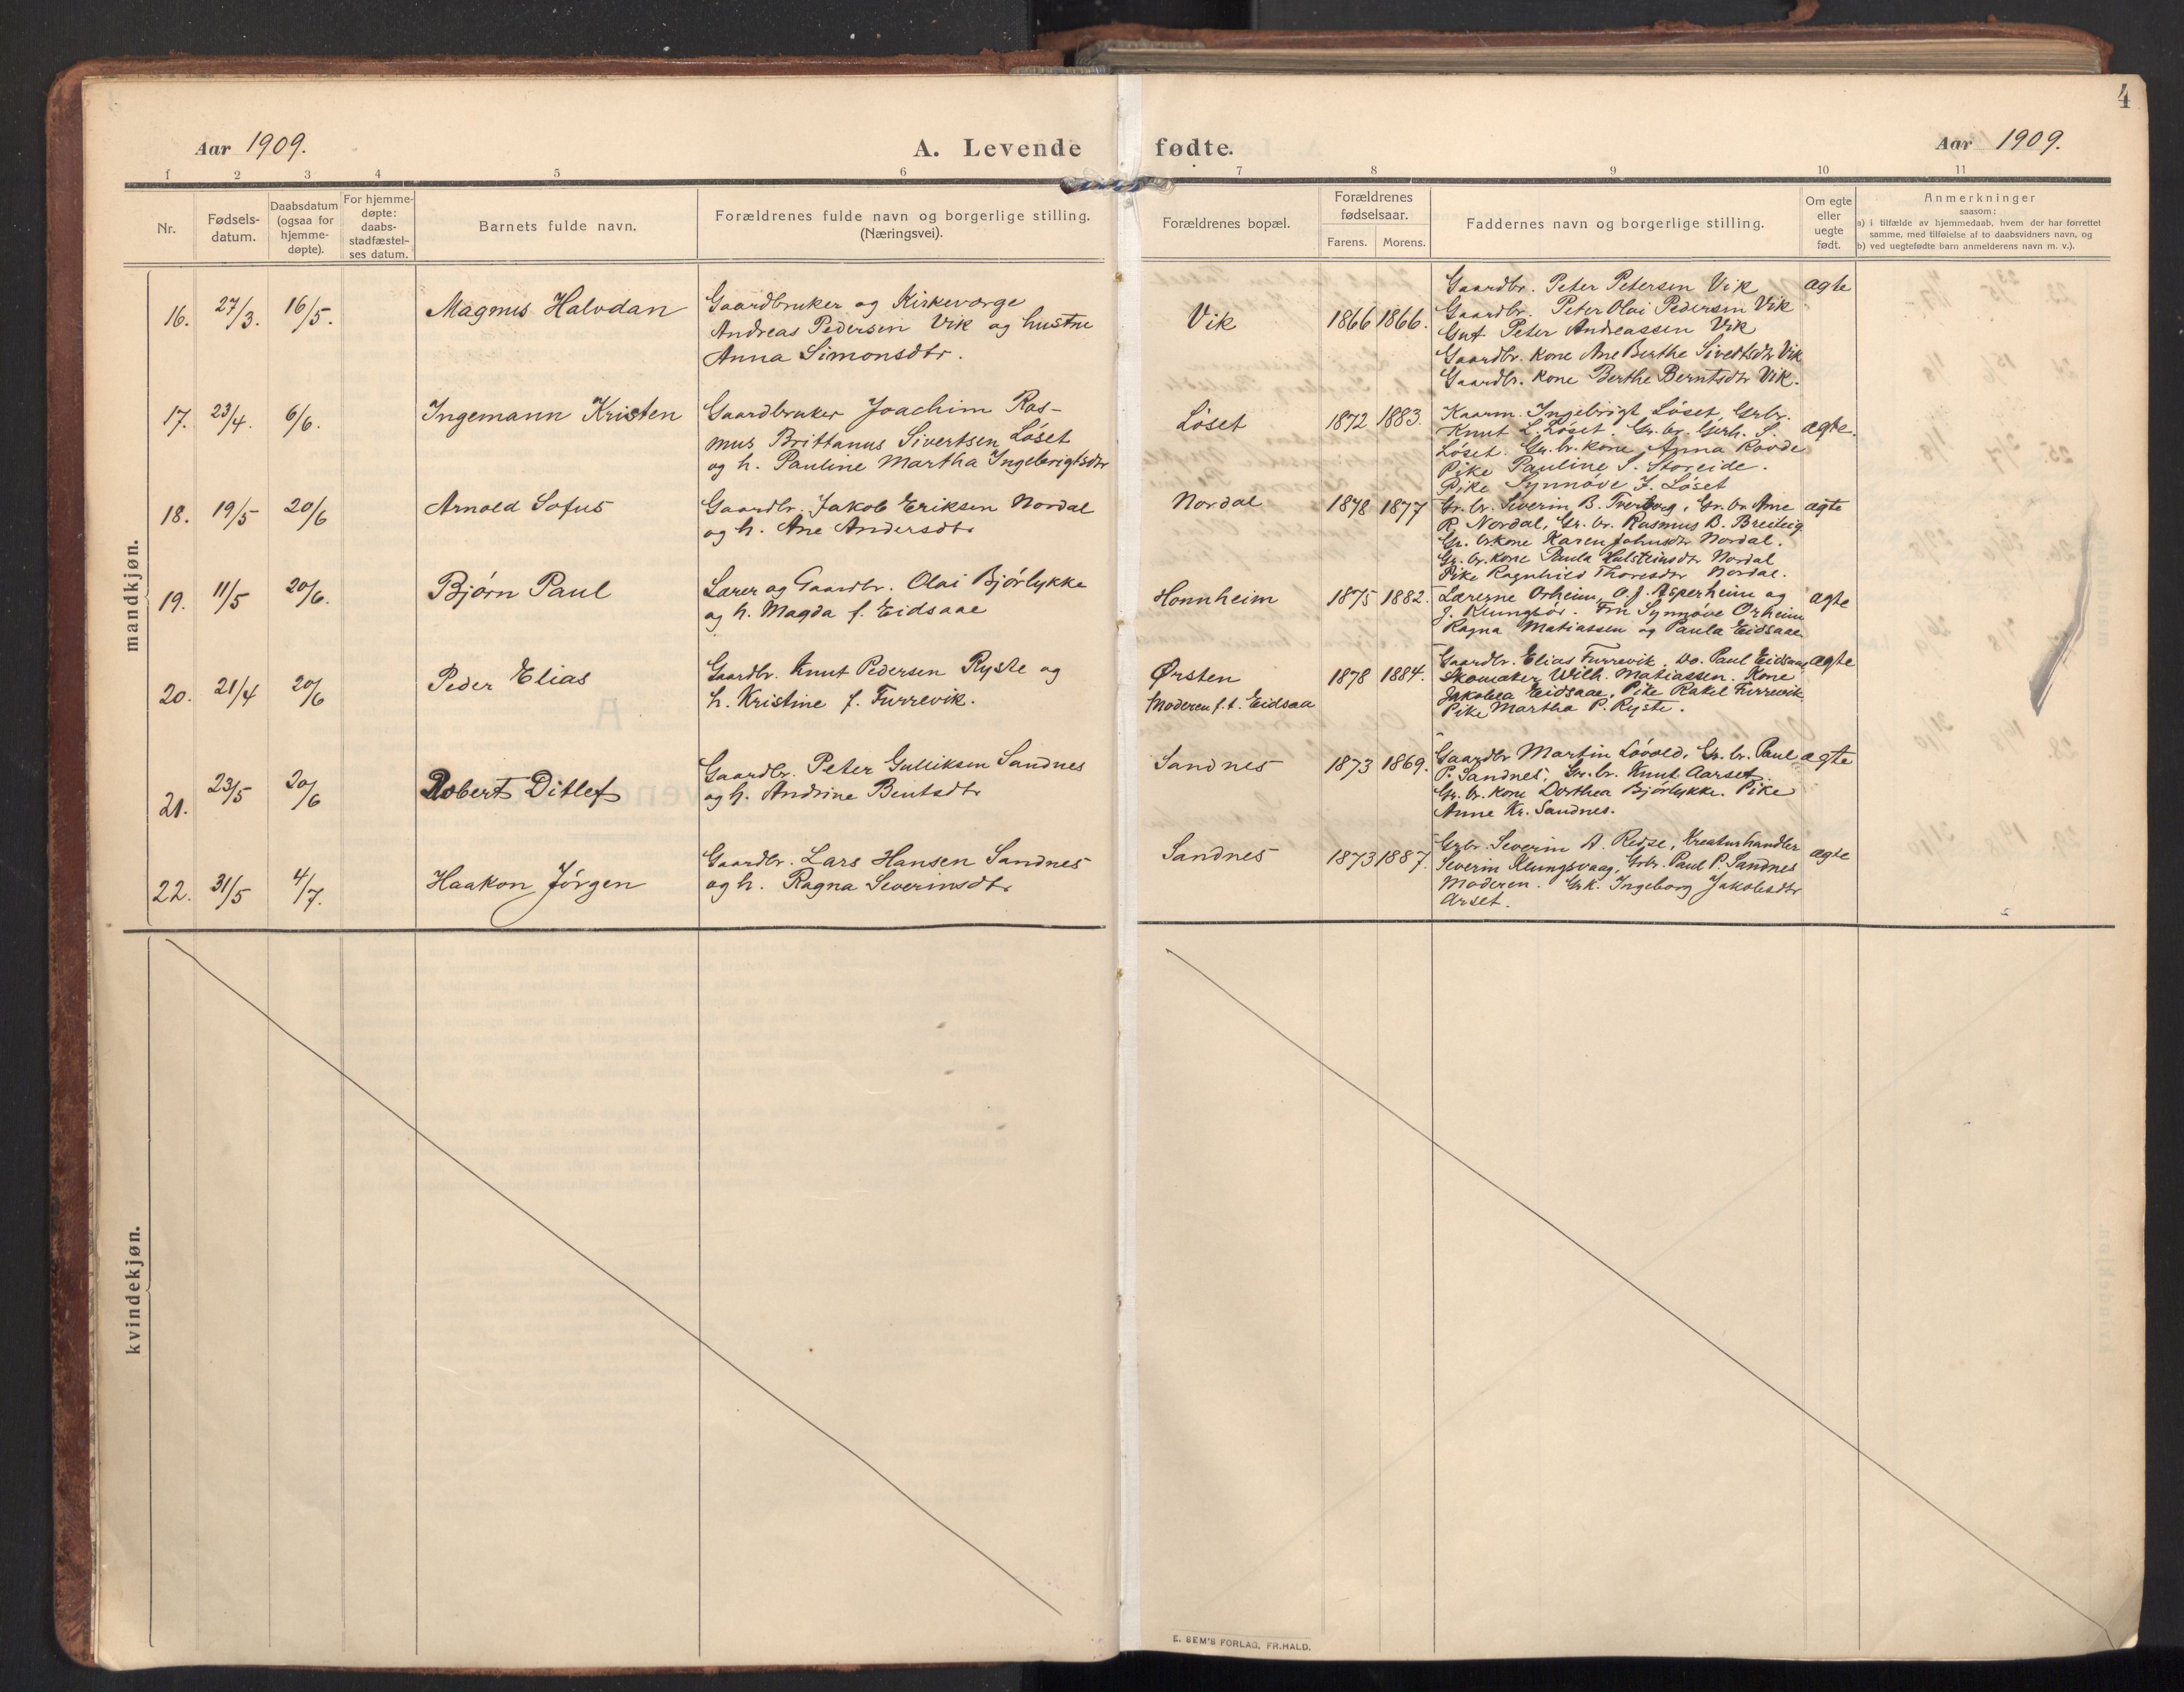 4
Aar 1909.
A. Levende fødte.
Aar 1909.
1 2 3 4 5 6 7 8 9 10 11
Nr.
Fødsels-
datum.
Daabsdatum
(ogsaa for
hjemme-
døpte).
For hjemme-
døpte:
daabs-
stadfæstel-
ses datum.
Barnets fulde navn.
Forældrenes fulde navn og borgerlige stilling.
(Næringsvei).
Forældrenes bopæl.
Forældrenes
fødselsaar.
Farens. Morens.
Faddernes navn og borgerlige stilling.
Om egte
eller
uegte
født.
Anmerkninger
saasom:
a) i tilfælde av hjemmedaab, hvem der har forrettet
samme, med tilføielse af to daabsvidners navn, og
b) ved uegtefødte barn anmelderens navn m. v.).
mandkjøn.
16. 27/3. 16/5. Magnus Halvdan
Gaardbruker og Kirkeværge
Andreas Pedersen Vik og hustru
Anna Simonsdtr.
Vik 1866 1866.
Gaardbr. Peter Petersen Vik
Gaardbr. Peter Olai Pedersen Vik
Gut Peter Andreassen Vik
Gaardbr. kone Ane Berthe Sivertsdtr Vik
Gaardbr. kone Berthe Berntsdtr Vik.
ægte
17. 23/4. 6/6. Ingemann Kristen
Gaardbruker Joachim Ras-
mus Brittanus Sivertsen Løset
og h. Pauline Martha Ingebrigtsdtr
Løset 1872 1883.
Kaarm. Ingebrigt Løset, Grbr.
Knut L. Løset. Gr. br. Gerh. S.
Løset. Gr. br. kone Anna Rovde
Pike Pauline S. Storeide.
Pike Synnøve J. Løset
ægte.
18. 19/5 20/6 Arnold Sofus
Gaardbr. Jakob Eriksen Nordal
og h. Ane Andersdtr
Nordal 1878 1877
Gr. br. Severin B. Gr. br. Arne
R. Nordal, Gr. br. Rasmus B. Breiteig
Gr. br. kone Karen Johnsdtr Nordal.
Gr. br. kone Paula Nordal
Pike Ragnhild Thoresdtr Nordal.
ægte
19. 11/5 20/6. Bjørn Paul
Lærer og Gaardbr. Olai Bjørlykke
og h. Magda f. Eidsaae
Honnheim 1875 1882.
Lærerne Orheim, O. J. Asperheim og
J. Klungsør. Fru Synnøve Orheim
Ragna Matiassen og Paula Eidsaae
ægte
20. 21/4 20/6 Peder Elias
Gaardbr. Knut Pedersen Ryste og
h. Kristine f. Furrevik.
Ørsten
Moderen f. t. Eidsaa
1878 1884.
Gaardbr. Elias Furrevik. Do. Paul Eidsaae
Skomaker Wilh. Matiassen. Kone
Jakobea Eidsaae, Pike Rakel Furrevik
Pike Martha P. Ryste.
ægte
21. 23/5 20/6 Robert Ditlef
Gaardbr. Peter Gulliksen Sandnes
og h. Andrine Bentsdtr
Sandnes 1873 1869.
Gaardbr Martin Løvold, Gr. br. Paul
P. Sandnes, Gr. br. Knut Aarset.
Gr. br. kone Dorthea Bjørlykke. Pike
Anne Kr. Sandnes.
ægte
22. 31/5 4/7. Haakon Jørgen
Gaardbr. Lars Hansen Sandnes
og h. Ragna Severinsdtr
Sandnes 1873 1887.
Grbr. Severin A. Reise, Kreaturhandler
Severin Klungsvaag, Grbr. Paul P. Sandnes
Moderen. Grk. Ingeborg Jakobsdtr
Arset.
ægte
kvindekjøn.
E. SEM'S FORLAG, FR.HALD.